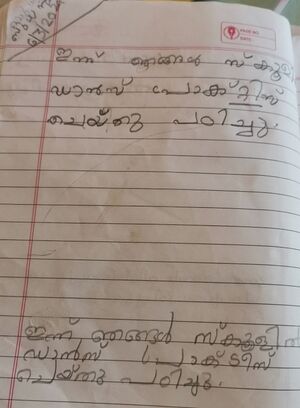 6/3/20
PAGE NO.
DATE
ഇന്ന് ഞങ്ങൾ സ്കൂളി
ഡാൻസ് പ്രാക്ടീസ്
ചെയ്തു പഠിച്ചു.
ഇന്ന് ഞങ്ങൾ സ്കൂളിൽ
ഡാൻസ് പ്രാക്ടീസ്
ചെയ്തു പഠിച്ചു.